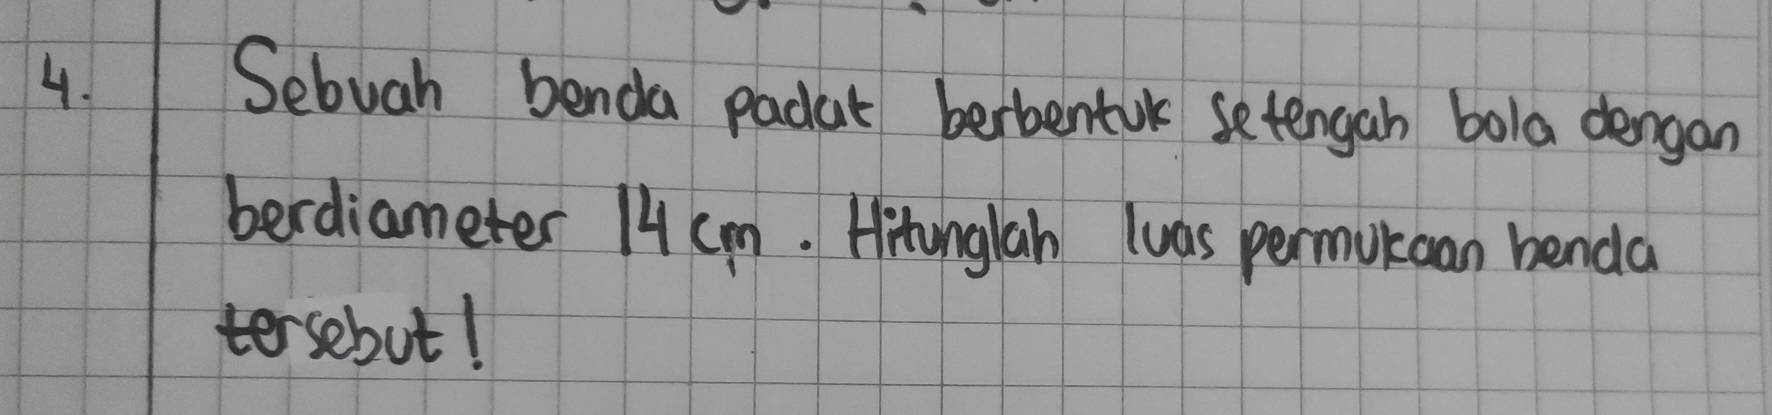 4. Sebuah benda padat berbentuk setengah bola dengan
berdiameter 14 cm. Hitunglah luas permukaan benda
tersebut!